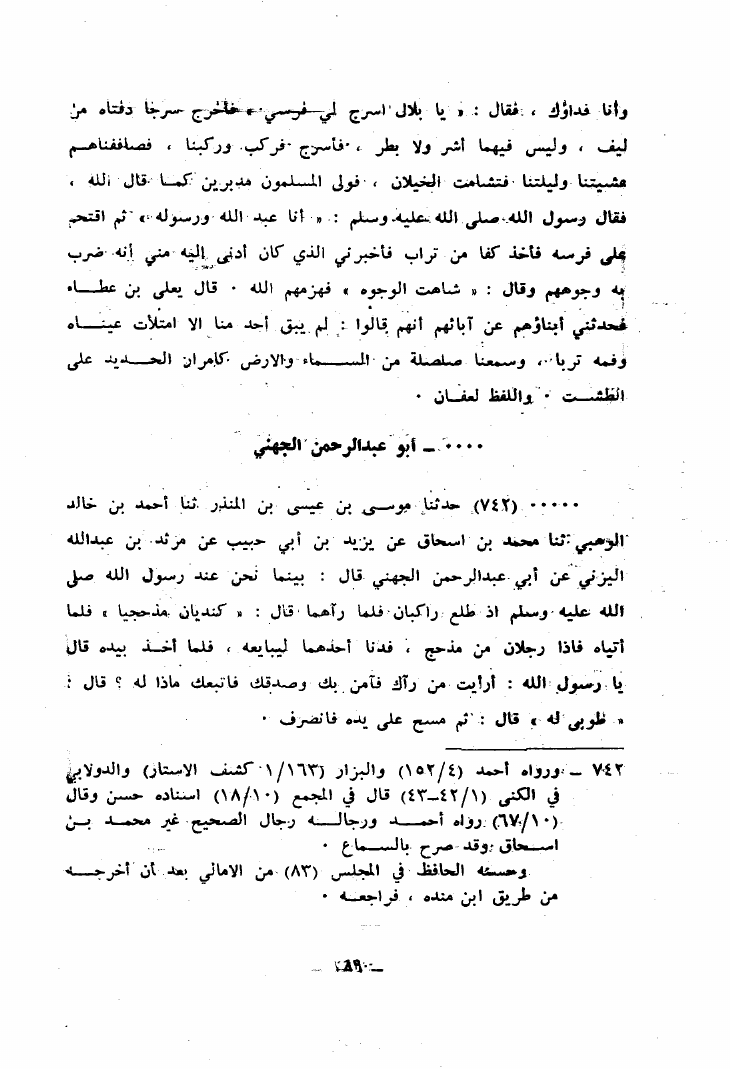 وأنا فداؤك ، فقال : « يا بلال اسرج لي فرسي » فأخرج سرجا دفتاه من
ليف ، وليس فيهما أشر ولا بطر ، فأسرج فركب وركبنا ، فصاففناهم
عشيتنا وليلتنا فتشامت الخيلان ، فولى المسلمون مدبرين كما قال الله ،
فقال رسول الله صلى الله عليه وسلم : « أنا عبد الله ورسوله » ثم اقتحم
على فرسه فأخذ كفا من تراب فأخبرني الذي كان أدنى إليه مني أنه ضرب
به وجوههم وقال : « شاهت الوجوه » فهزمهم الله ٠ قال يعلى بن عطاء
فحدثني أبناؤهم عن آبائهم أنهم قالوا : لم يبق أحد منا الا امتلأت عيناه
وفمه ترابا ، وسمعنا صلصلة من السماء والارض كامرار الحديد على
الطشت ٠ واللفظ لعفان ٠
٠٠٠٠ ـ أبو عبدالرحمن الجهني
٠٠٠٠٠ (٧٤٢) حدثنا موسى بن عيسى بن المنذر ثنا أحمد بن خالد
الوهبي ثنا محمد بن اسحاق عن يزيد بن أبي حبيب عن مرثد بن عبدالله
اليزني عن أبي عبدالرحمن الجهني قال : بينما نحن عند رسول الله صلى
الله عليه وسلم اذ طلع راكبان فلما رآهما قال : « كنديان مذحجيا » فلما
أتياه فاذا رجلان من مذحج ، فدنا أحدهما ليبايعه ، فلما أخذ بيده قال
يا رسول الله : أرأيت من رآك فآمن بك وصدقك فاتبعك ماذا له ؟ قال :
« طوبى له » قال : ثم مسح على يده فانصرف ٠
٧٤٢ ـ ورواه أحمد (١٥٢/٤) والبزار (١/١٦٣ كشف الاستار) والدولابي
في الكنى (٤٢/١ـ٤٣) قال في المجمع (١٨/١٠) اسناده حسن وقال
(٦٧/١٠) رواه أحمد ورجاله رجال الصحيح غير محمد بن
اسحاق وقد صرح بالسماع ٠
وحسنه الحافظ في المجلس (٨٣) من الامالي بعد أن أخرجه
من طريق ابن منده ، فراجعه ٠